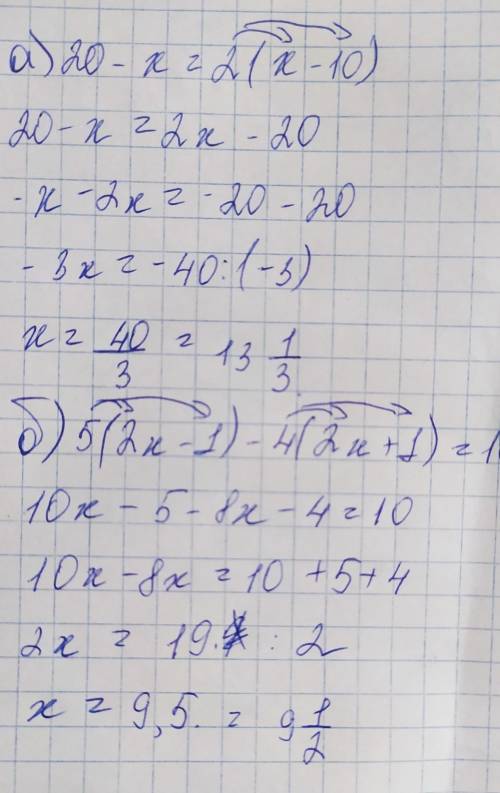 а) 20 - x = 2(x - 10)
20 - x = 2x - 20
-x - 2x = -20 - 20
-3x = -40 : (-3)
x = 40/3 = 13 1/3.
б) 5(2x - 1) - 4(2x + 1) = 1
10x - 5 - 8x - 4 = 10
10x - 8x = 10 + 5 + 4
2x = 19. : 2
x = 9,5. = 9 1/2